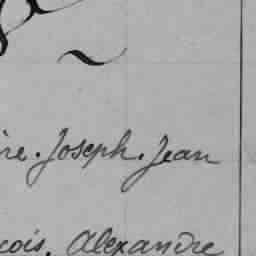 re. Joseph. Jean
cois. Alexandre